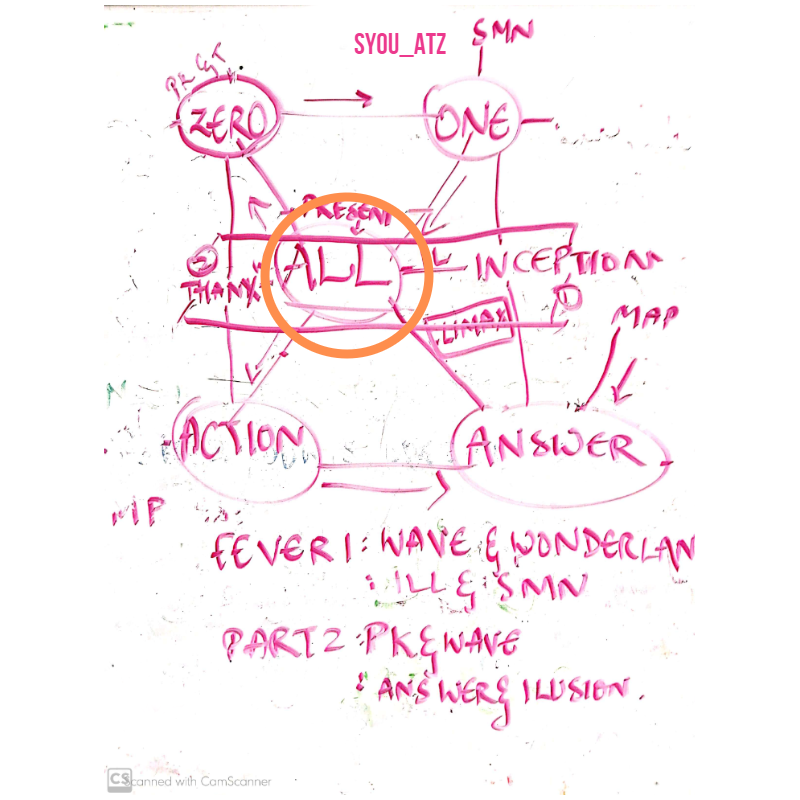 SYOU_ATZ
SMN
PK & T
ZERO
ONE
PRESENT
ALL
INCEPTION
2
THANX
1
CLIMAX
MAP
ACTION
ANSWER
MP
FEVER 1: WAVE & WONDERLAN
: ILL & SMN
PART 2: PK & WAVE
: ANSWER & ILUSION.
CS canned with CamScanner